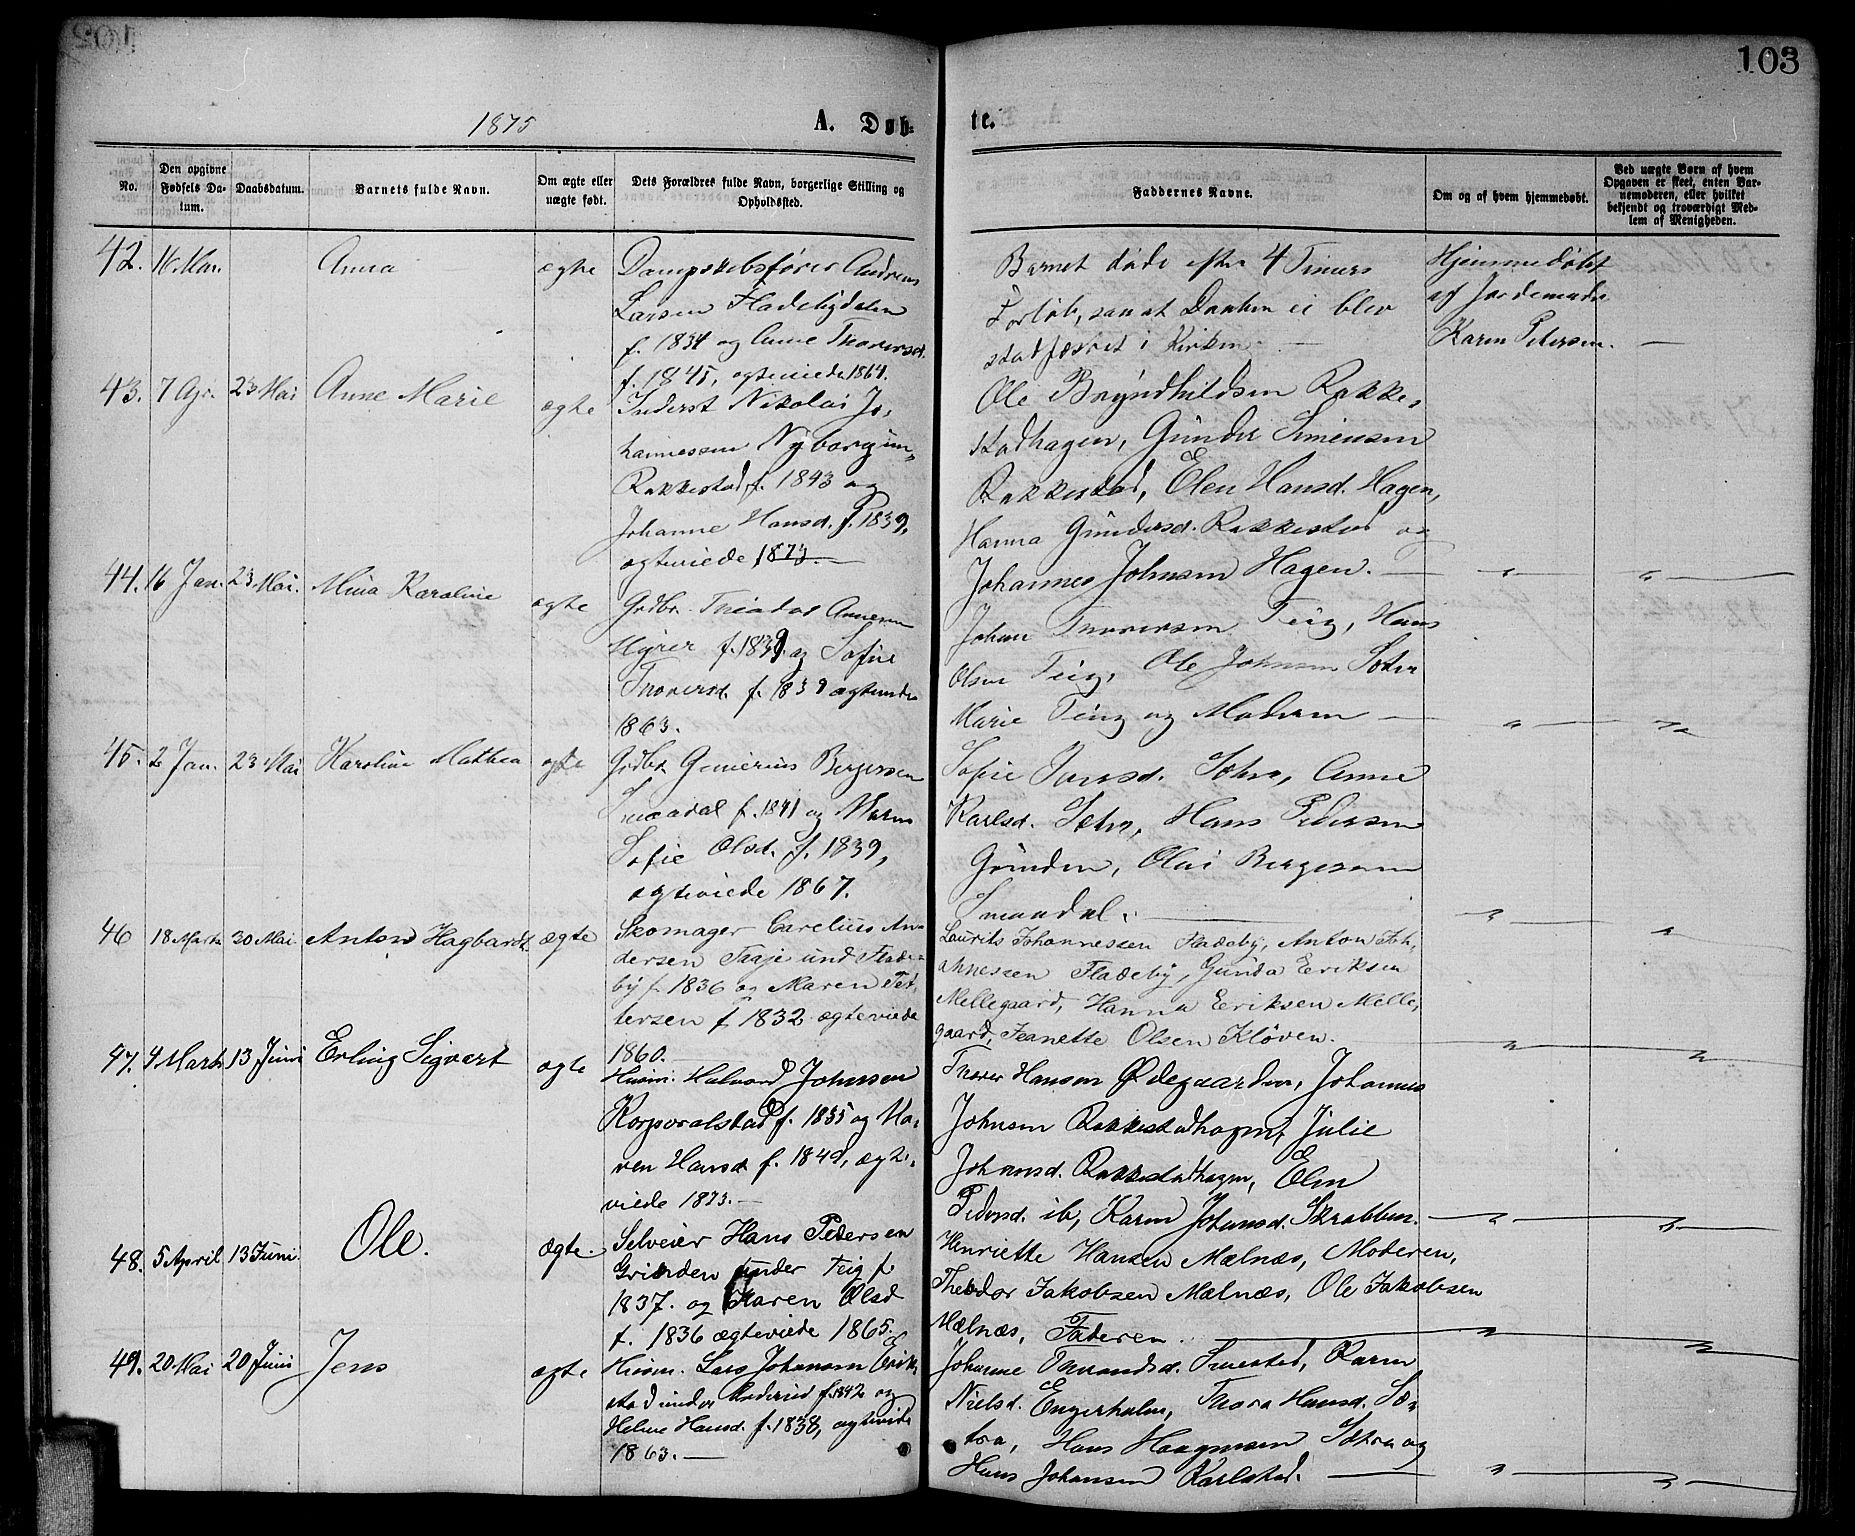 103
1875
A. Døb-
te.
No.
Den opgivne Fødsels Da-tum.
Daabsdatum.
Barnets fulde Navn.
Om ægte eller uægte født.
Dets Forældres fulde Navn, borgerlige Stilling og Opholdssted.
Faddernes Navne.
Om og af hvem hjemmedøbt.
Ved uægte Børn af hvem Opgaven er skeet, enten Bar-nemoderen, eller hvilket bekjendt og troværdigt Med-lem af Menigheden.
42. 16 Mar. Anna ægte
Dampskibsfører Andreas
Larsen Fladebydalen
f. 1834 og Anne Thoversd.
f. 1845, ægteviede 1864.
Barnet døde efter 4 Timers
Forløb, saa at Daaben ei blev
stadfæstet i Kirken. —
Hjemmedøbt
af Jordemoder
Karen Petersen. —
43. 7 Apr. 23 Mai Anne Marie ægte
Inderst Nikolai Jo-
hannessen Nyborg un.
Rakkestad f. 1843 og
Johanne Hansd. f. 1839,
ægteviede 1873. —
Ole Bryndhildsen Rakke-
stadhagen, Gunder Simensen
Rakkestad, Elen Hansd. Hagen,
Hanna Gundersd. Rakkestad og
Johannes Johnsen Hagen. — " — "
44. 16 Jan. 23 Mai. Mina Karoline ægte
Grdbr. Theodor
f. 1839 og Sofie
Thoversd. f. 1839 ægteviede
1863.
Johan Thoversen Teig, Hans
Olsen Teig, Ole Johnsen
Marie Teig og Moderen — " — "
45. 2 Jan. 23 Mai Karoline Mathea ægte
Grdbr. Bergersen
Smaadal f. 1841 og Karen
Sofie Olsd. f. 1839,
ægteviede 1867.
Sofie Jensd. Anne
Karlsd. Hans Pedersen
Grinden, Olai Bergersen
Smaadal. — " — "
46 18 Marts 30 Mai. Anton Hagbardt ægte
Skomager Carelius An-
dersen Taaje und Flade-
by f. 1836 og Maren Pet-
tersen f 1832 ægteviede
1860. —
Laurits Johannessen Fladeby, Anton Joh-
annessen Fladeby, Gunda Eeriksen
Mellegaard, Hanna Eeriksen Melle-
gaard, Jeanette Olsen Kløven. "
47. 4 Marts 13 Juni Erling Sigvart ægte
Husm. Halvord Johnsen
Korporalstad f. 1835 og Ma-
ren Hansd f. 1849, ægte-
viede 1873. —
Thover Hansen Ødegaarden, Johannes
Johnsen Rakkestadhagen, Julie
Johnsd. Rakkestadhagen, Elen
Pedersd. ib, Karen Johansd. Skrabben. — " — "
48. 5 April 13 Juni. Ole. ægte
Selveier Hans Pedersen
Grinden under Teig f.
1837. og Karen Olsd
f. 1836 ægteviede 1865.
Henriette Hansen Mælnæs, Moderen,
Theodor Jakobsen Mælnæs, Ole Jakobsen
Mælnæs, Faderen. — " — "
49. 20 Mai 20 Juni Jens ægte
Husm. Lars Johansen Erik-
stad under f. 1842 og
Helene Hansd. f. 1838, ægteviede
1863. —
Johanne Smestad, Karen
Nielsd. Engerholm, Thora Hansd. Sæ-
tra, Hans Sætra og
Hans Johansen Karlstad. — " — "